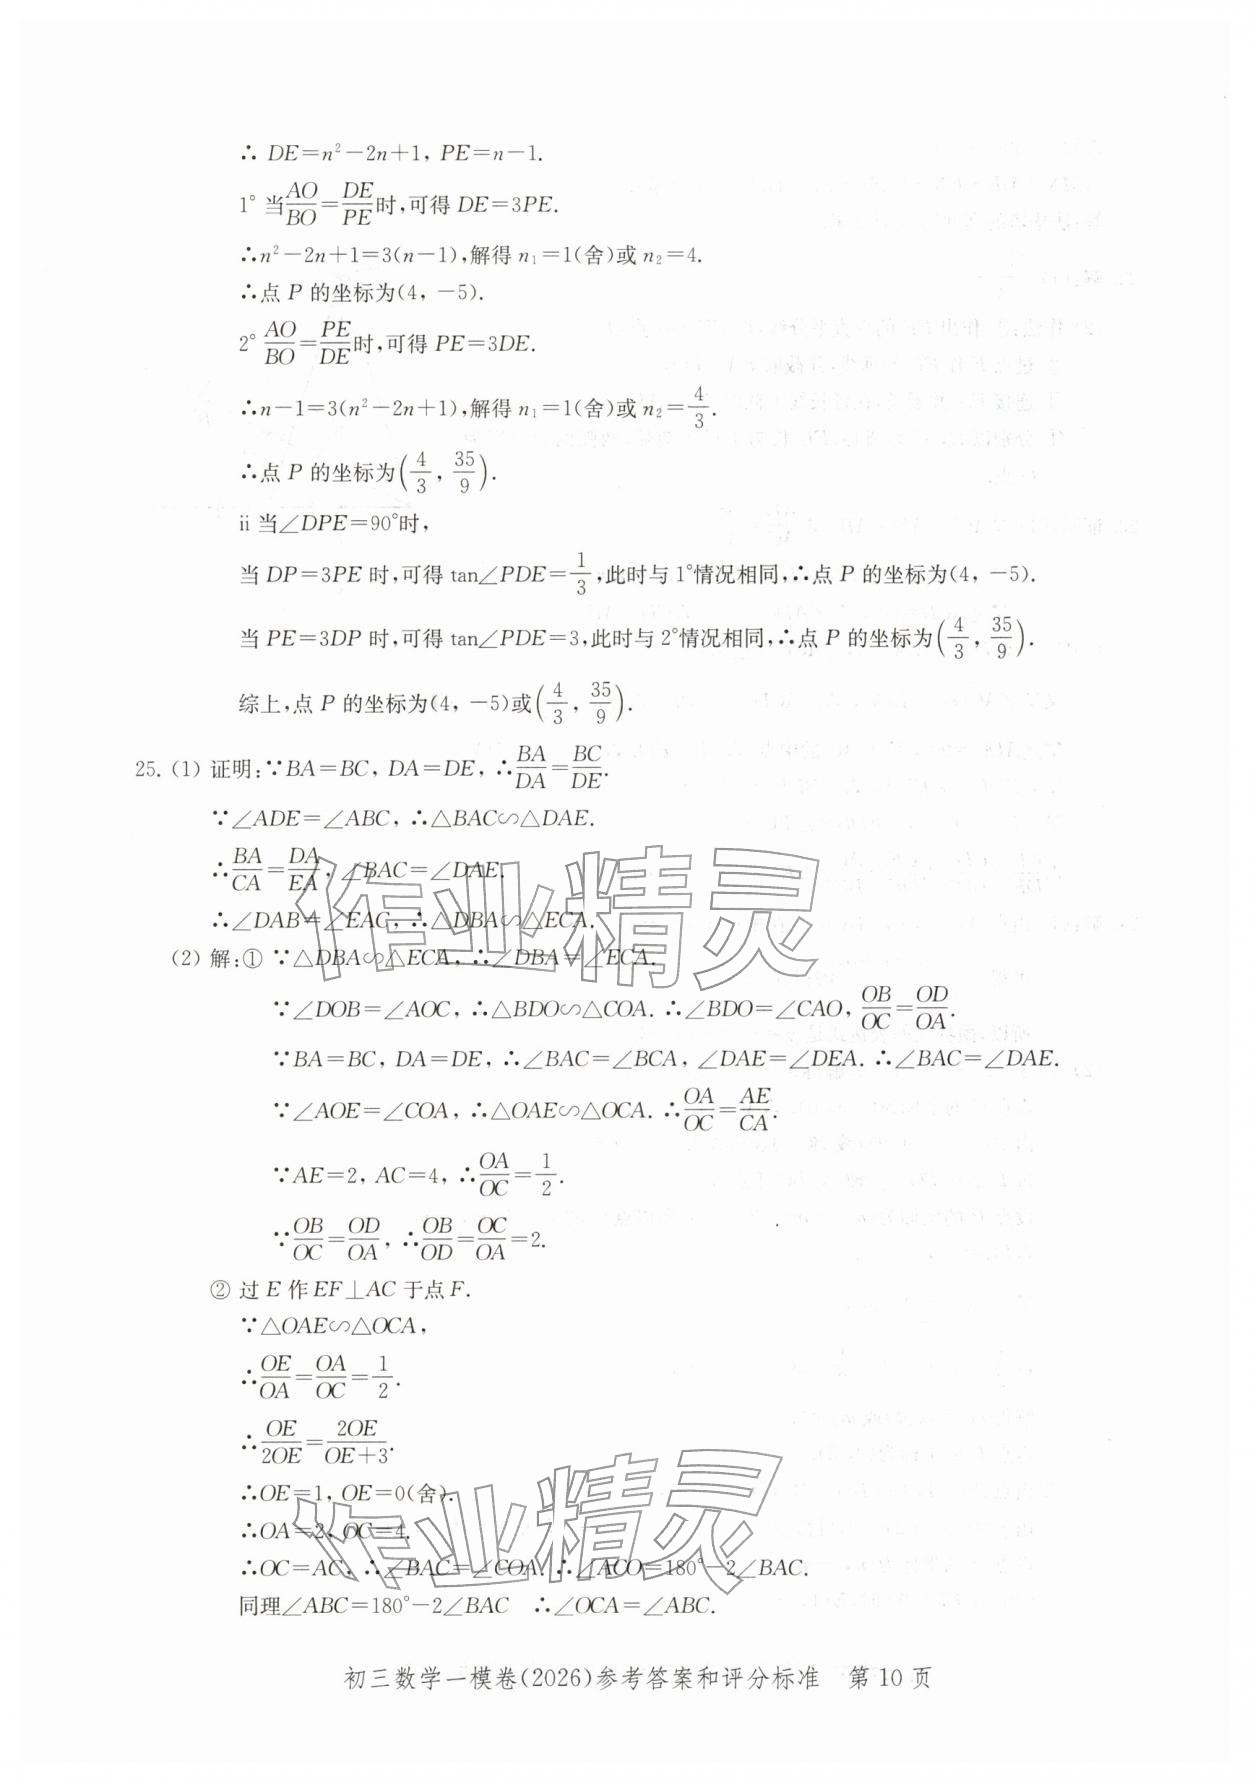 ∴ DE=n²-2n+1, PE=n-1.
1° 当AO/BO=DE/PE时,可得 DE=3PE.
∴n²-2n+1=3(n-1),解得 n₁=1(舍)或 n₂=4.
∴点 P 的坐标为(4, -5).
2° AO/BO=PE/DE时,可得 PE=3DE.
∴n-1=3(n²-2n+1),解得 n₁=1(舍)或 n₂=4/3.
∴点 P 的坐标为(4/3, 35/9).
ii 当∠DPE=90°时,
当 DP=3PE 时,可得 tan∠PDE=1/3,此时与 1°情况相同,∴点 P 的坐标为(4, -5).
当 PE=3DP 时,可得 tan∠PDE=3,此时与 2°情况相同,∴点 P 的坐标为(4/3, 35/9).
综上,点 P 的坐标为(4, -5)或(4/3, 35/9).
25. (1) 证明:∵BA=BC, DA=DE, ∴BA/DA=BC/DE.
∵∠ADE=∠ABC, ∴△BAC∽△DAE.
∴BA/CA=DA/EA, ∠BAC=∠DAE.
∴∠DAB=∠EAC, ∴△DBA∽△ECA.
(2) 解:① ∵△DBA∽△ECA, ∴∠DBA=∠ECA.
∵∠DOB=∠AOC, ∴△BDO∽△COA. ∴∠BDO=∠CAO, OB/OC=OD/OA.
∵BA=BC, DA=DE, ∴∠BAC=∠BCA, ∠DAE=∠DEA. ∴∠BAC=∠DAE.
∵∠AOE=∠COA, ∴△OAE∽△OCA. ∴OA/OC=AE/CA.
∵AE=2, AC=4, ∴OA/OC=1/2.
∵OB/OC=OD/OA, ∴OB/OD=OC/OA=2.
② 过 E 作 EF⊥AC 于点 F.
∵△OAE∽△OCA,
∴OE/OA=OA/OC=1/2.
∴OE/2OE=2OE/OE+3.
∴OE=1, OE=0(舍).
∴OA=2, OC=4.
∴OC=AC, ∴∠BAC=∠COA. ∴∠ACO=180°-2∠BAC.
同理∠ABC=180°-2∠BAC ∴∠OCA=∠ABC.
初三数学一模卷(2026)参考答案和评分标准 第 10 页
作业精灵
作业精灵